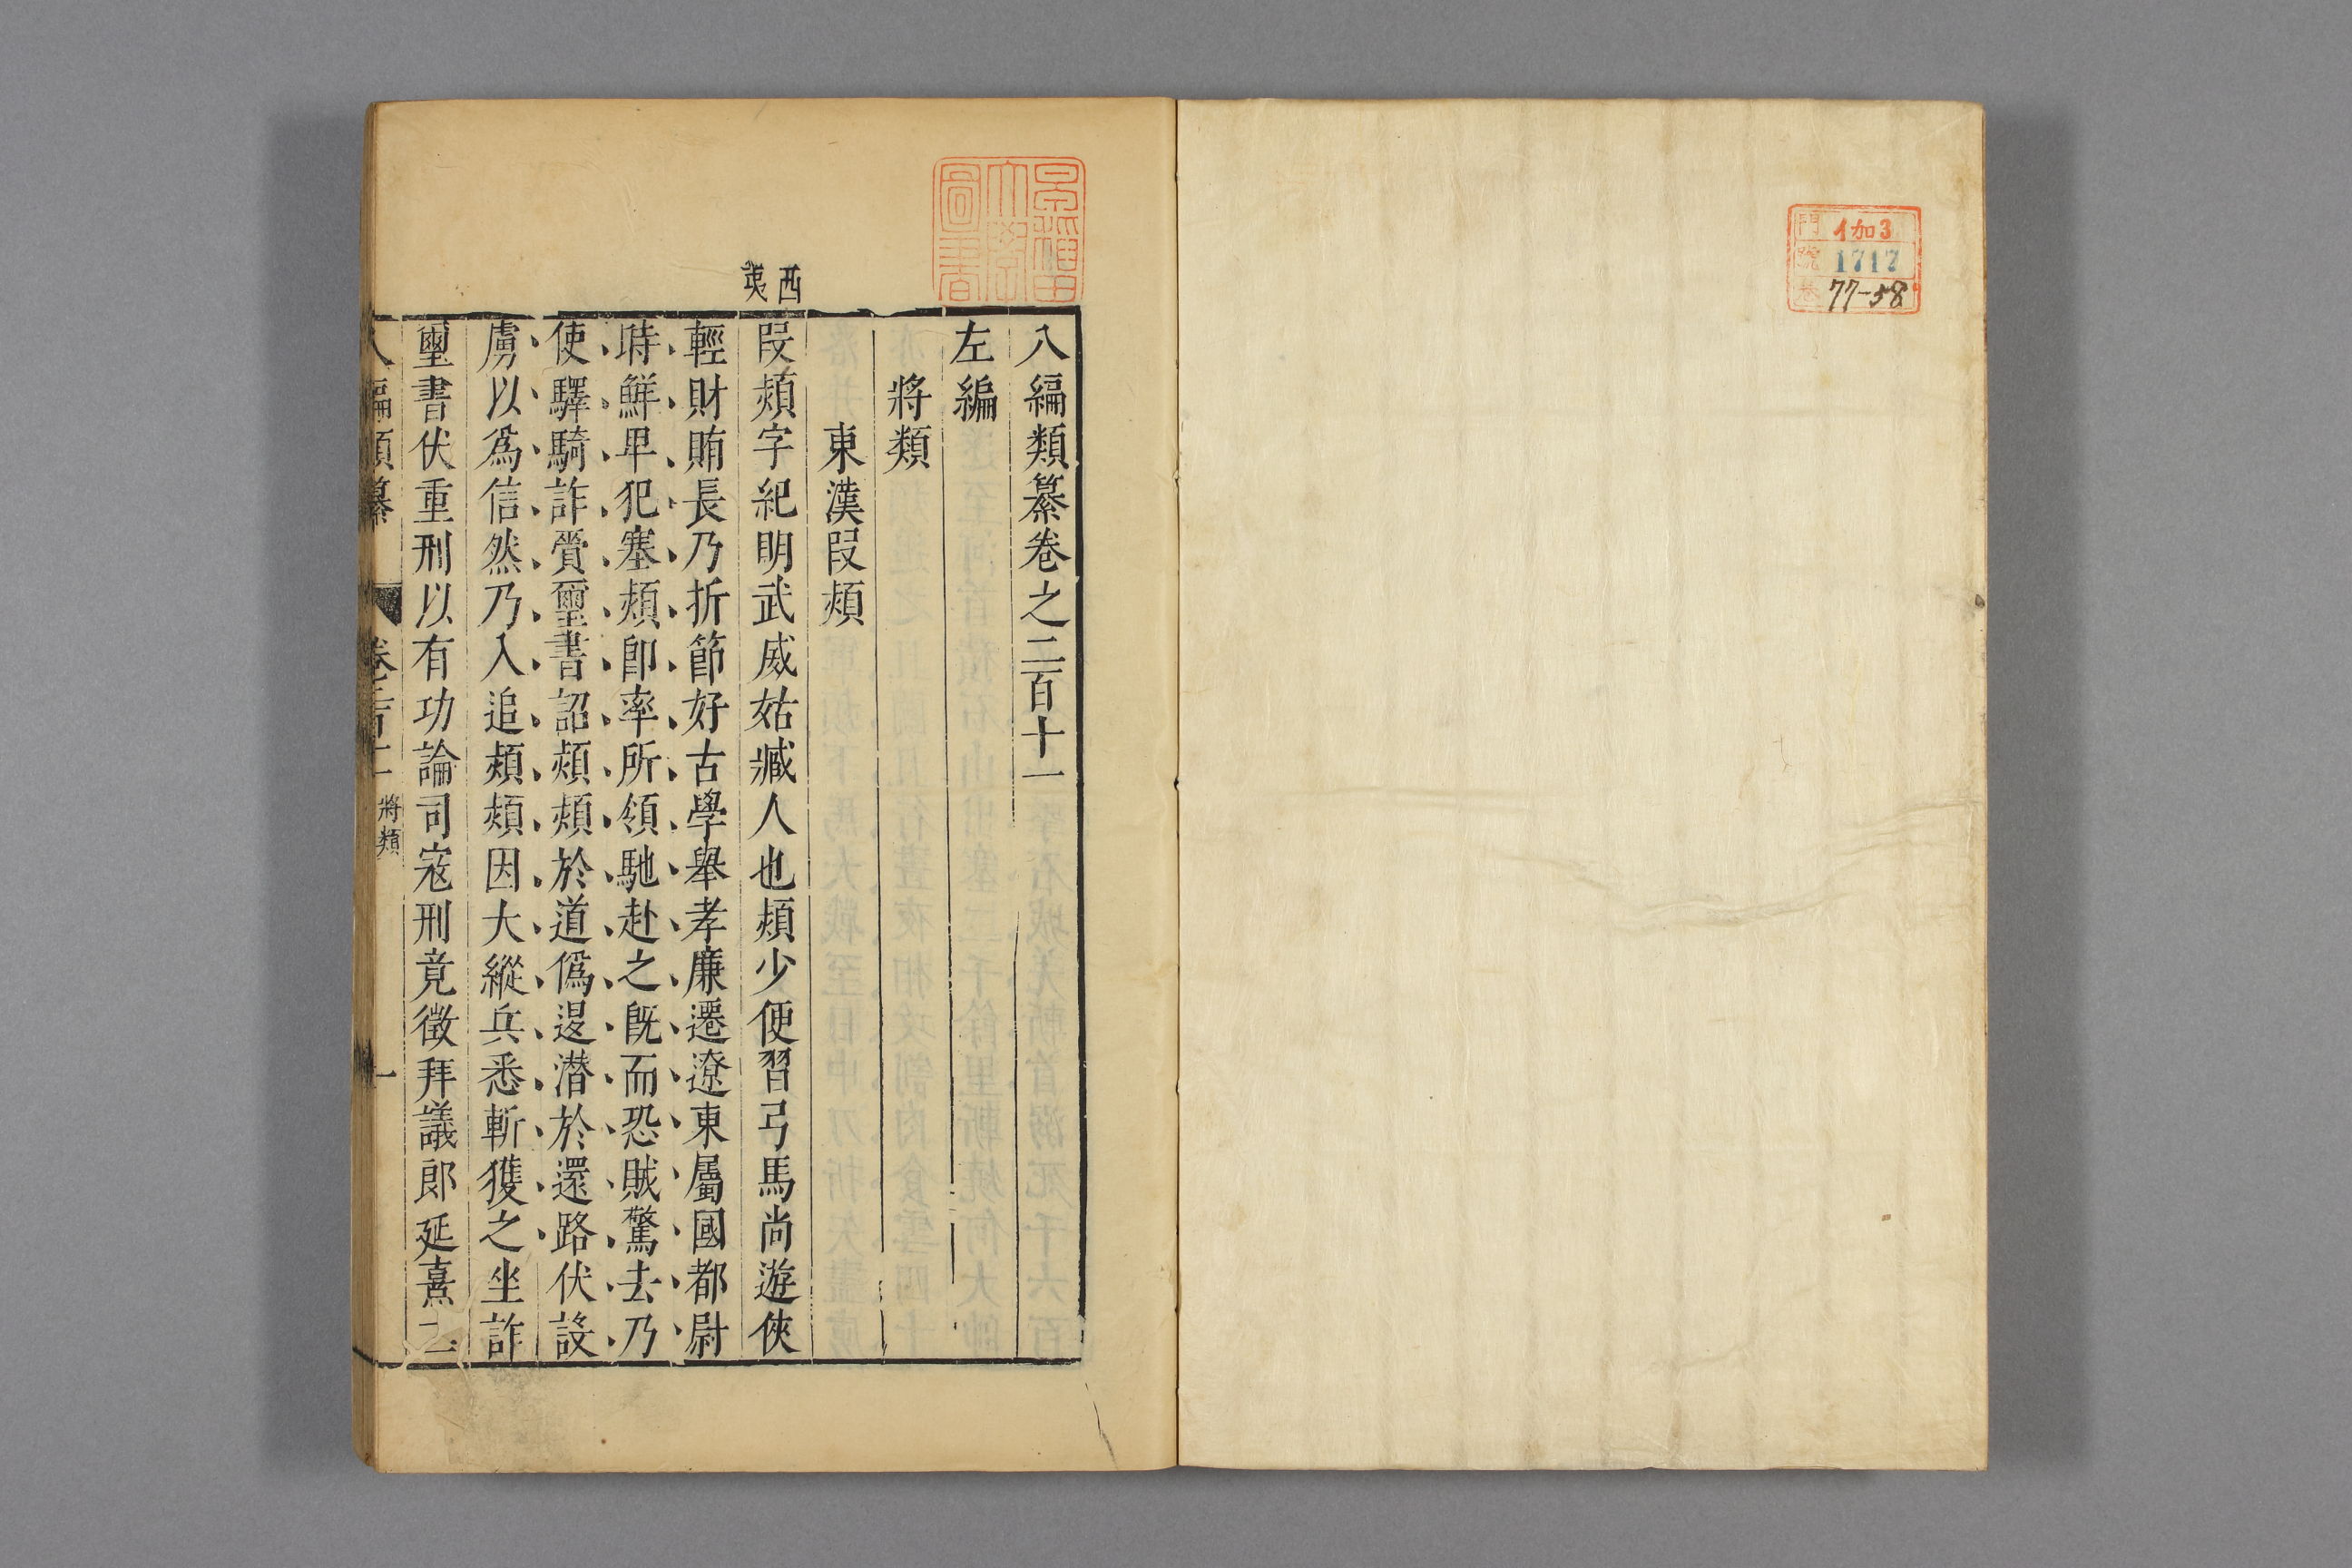 伽3
1717
77-58
早稲田大學圖書
八編類纂卷之二百十一
左編
將類
東漢段熲
西夷
段熲字紀明武威姑臧人也熲少便習弓馬尚遊俠
輕財賄長乃折節好古學舉孝廉遷遼東屬國都尉
時鮮卑犯塞熲卽率所領馳赴之既而恐賊驚去乃
使驛騎詐賫璽書詔熲熲於道僞退潛於還路伏設
虜以爲信然乃入追熲熲因大縱兵悉斬獲之坐詐
璽書伏重刑以有功論司寇刑竟徵拜議郎延熹二
八編類纂 卷二百十一 將類 一